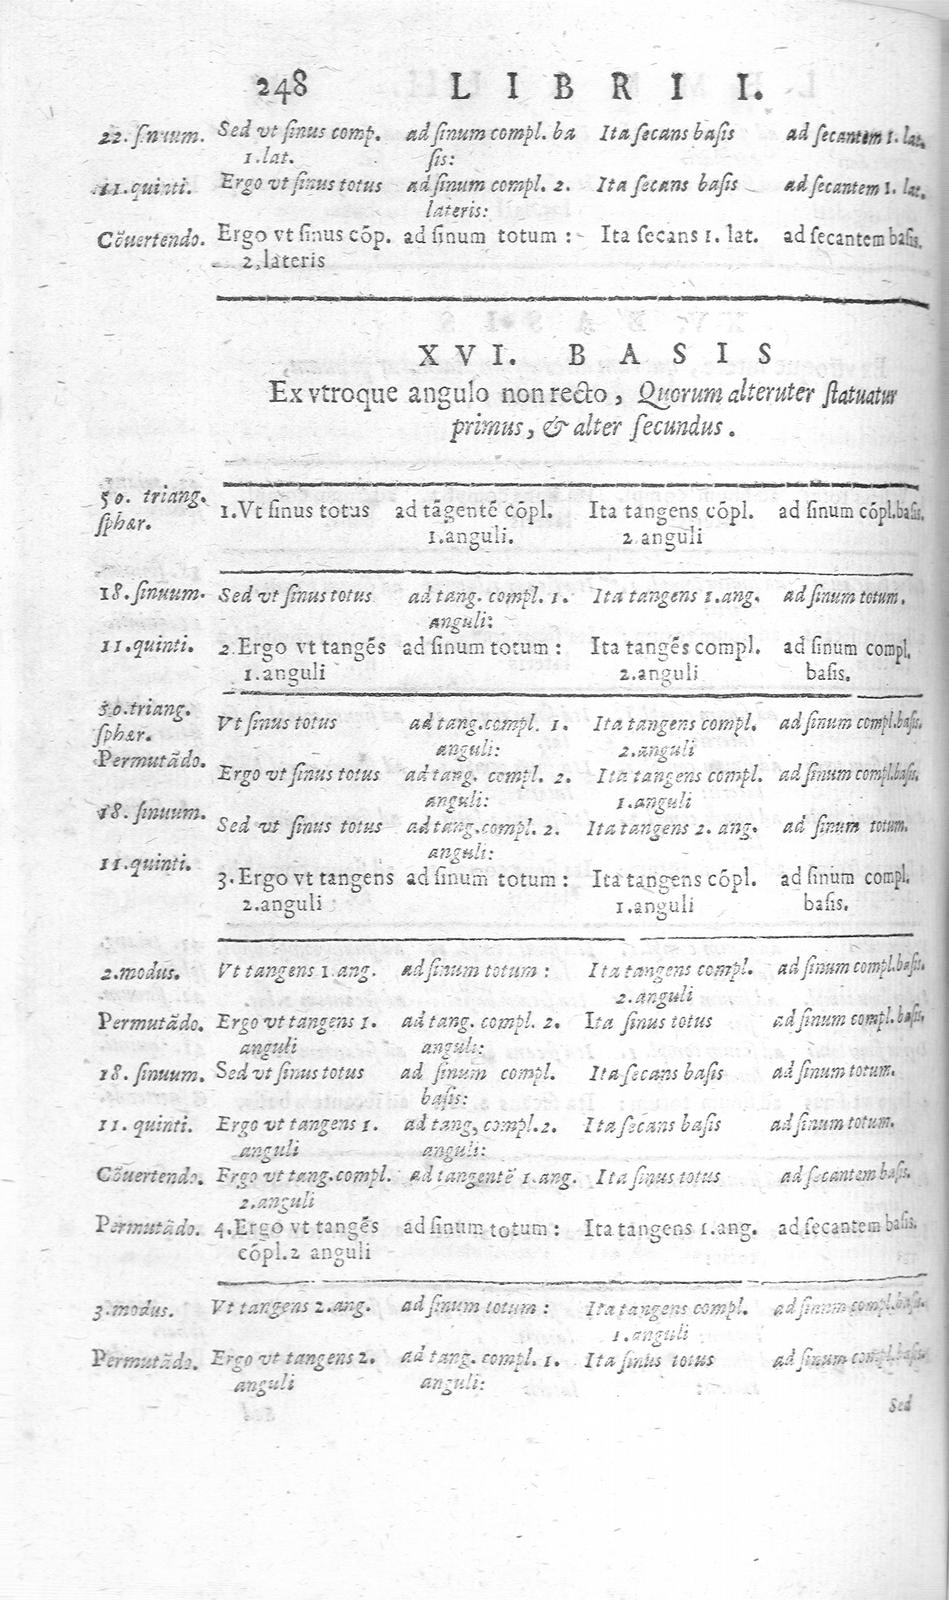 248 LIBRI I.
22. sinuum. Sed vt sinus comp. ad sinum compl. ba Ita secans basis ad secantem 1. lat.
1.lat. sis:
11.quinti. Ergo vt sinus totus ad sinum compl. 2. Ita secans basis ad secantem 1. lat.
lateris:
Cõuertendo. Ergo vt sinus cõp. ad sinum totum : Ita secans 1. lat. ad secantem basis.
2,lateris
XVI. BASIS
Ex vtroque angulo non recto, Quorum alteruter statuatur
primus, & alter secundus.
50. triang.
sphær. 1.Vt sinus totus ad tãgentẽ cõpl. Ita tangens cõpl. ad sinum cõpl.basis.
1.anguli. 2 anguli
18. sinuum. Sed vt sinus totus ad tang. compl. 1. Ita tangens 1.ang. ad sinum totum.
anguli:
11.quinti. 2.Ergo vt tangẽs ad sinum totum : Ita tangẽs compl. ad sinum compl.
1.anguli 2.anguli basis.
50.triang.
sphær. Vt sinus totus ad tang.compl. 1. Ita tangens compl. ad sinum compl.basis.
anguli: 2.anguli
Permutãdo. Ergo vt sinus totus ad tang. compl. 2. Ita tangens compl. ad sinum compl.basis.
anguli: 1.anguli
18. sinuum. Sed vt sinus totus ad tang.compl. 2. Ita tangens 2. ang. ad sinum totum.
anguli:
11.quinti. 3.Ergo vt tangens ad sinum totum : Ita tangens cõpl. ad sinum compl.
2.anguli 1.anguli basis.
2.modus. Vt tangens 1.ang. ad sinum totum : Ita tangens compl. ad sinum compl.basis.
2.anguli
Permutãdo. Ergo vt tangens 1. ad tang. compl. 2. Ita sinus totus ad sinum compl.basis.
anguli anguli:
18. sinuum. Sed vt sinus totus ad sinum compl. Ita secans basis ad sinum totum.
basis:
11. quinti. Ergo vt tangens 1. ad tang, compl.2. Ita secans basis ad sinum totum.
anguli anguli:
Cõuertendo. Ergo vt tang.compl. ad tangentẽ 1.ang. Ita sinus totus ad secantem basis.
2.anguli
Permutãdo. 4.Ergo vt tangẽs ad sinum totum : Ita tangens 1.ang. ad secantem basis.
cõpl.2 anguli
3.modus. Vt tangens 2.ang. ad sinum totum : Ita tangens compl. ad sinum compl.basis.
1.anguli
Permutãdo. Ergo vt tangens 2. ad tang. compl. 1. Ita sinus totus ad sinum compl.basis.
anguli anguli:
Sed